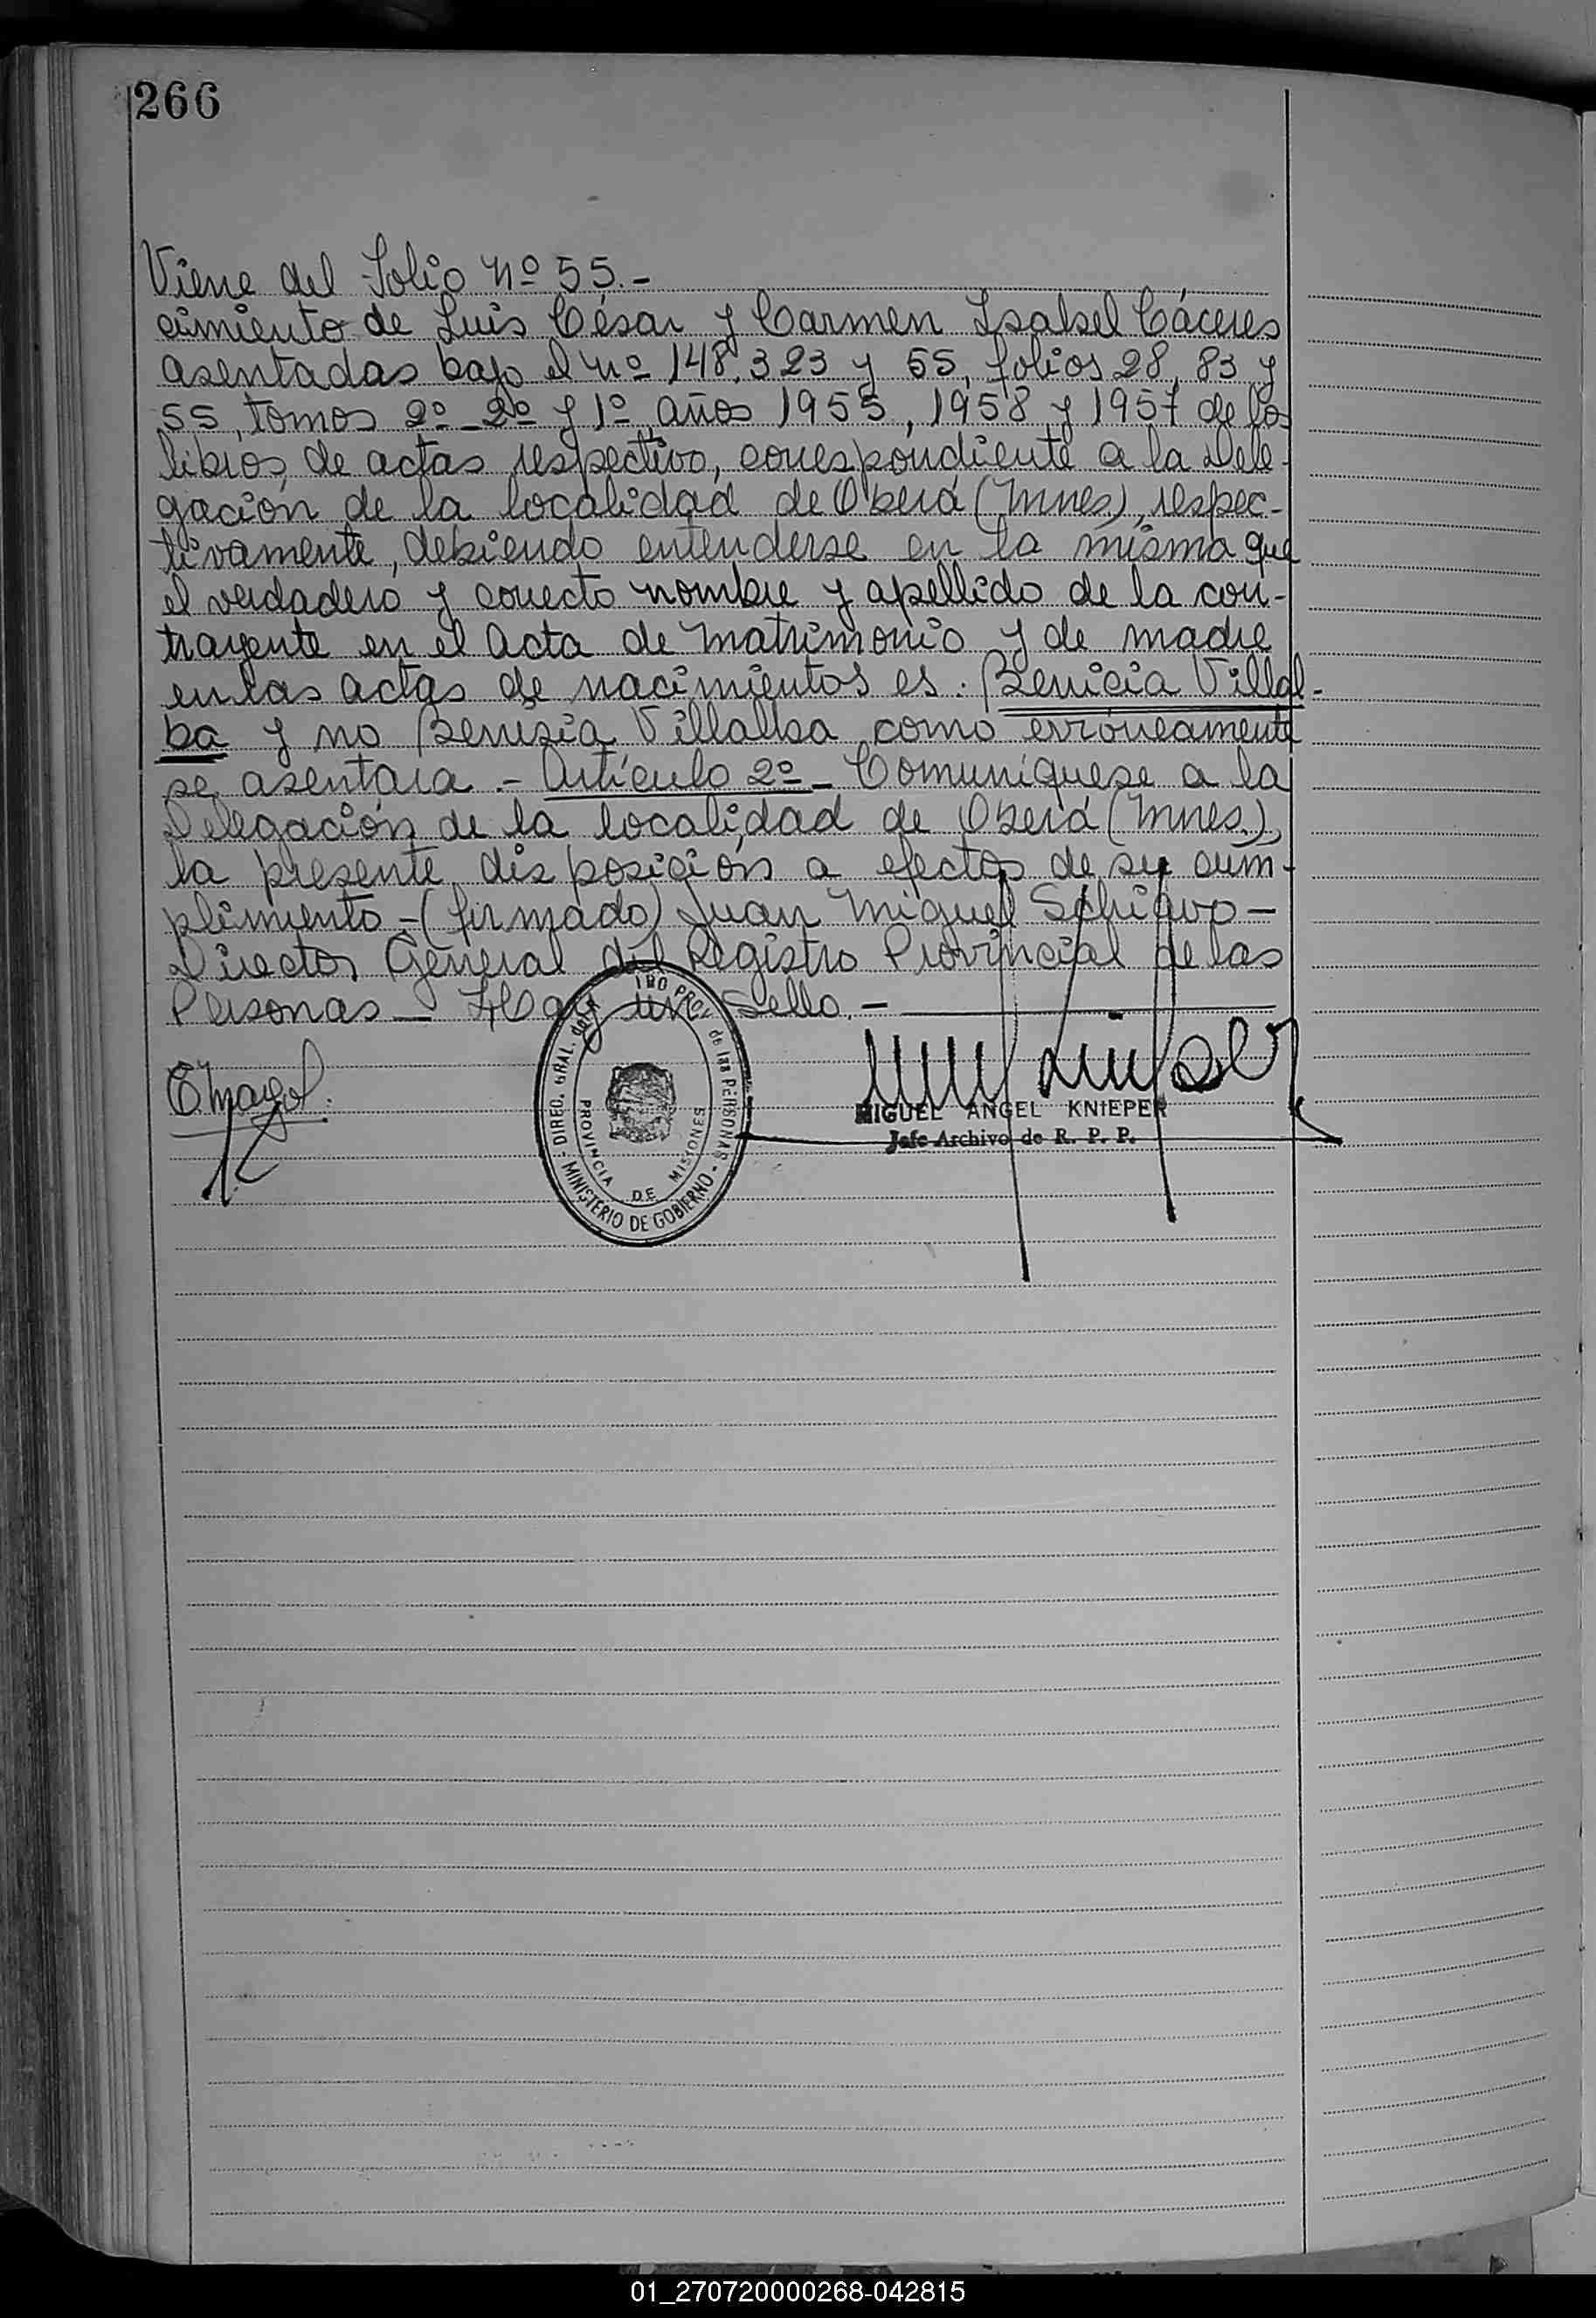 266
Viene del Folio Nº 55.-
cimiento de Luis César y Carmen Isabel Cáceres
asentadas bajo el Nº 148, 323 y 55, folios 28, 83 y
55, tomos 2º-2º y 1º, años 1955, 1958 y 1957 de los
libros de actas respectivo, correspondiente a la Dele-
gación de la localidad de Oberá (Mnes), respec-
tivamente, debiendo entenderse en la misma que
el verdadero y correcto nombre y apellido de la con-
trayente en el Acta de Matrimonio y de madre
en las actas de nacimientos es: Benicia Villal-
ba y no Benesia Villalba como erróneamente
se asentara.- Artículo 2º- Comuníquese a la
Delegación de la localidad de Oberá (Mnes.),
la presente disposición a efectos de su cum-
plimiento-(firmado) Juan Miguel Schiavo-
Director General del Registro Provincial de las
Personas- Hay un Sello.-
MIGUEL ANGEL KNIEPER
Jefe Archivo de R. P. P.
DIREC. GRAL. del PROV. de las PERSONAS
PROVINCIA DE MISIONES
MINISTERIO DE GOBIERNO
01_270720000268-042815